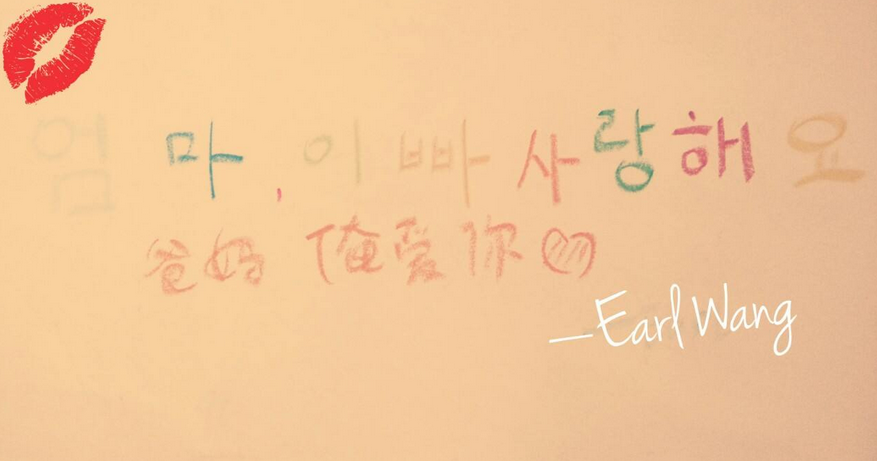 엄마, 이빠 사랑해요
爸妈 俺爱你
—Earl Wang